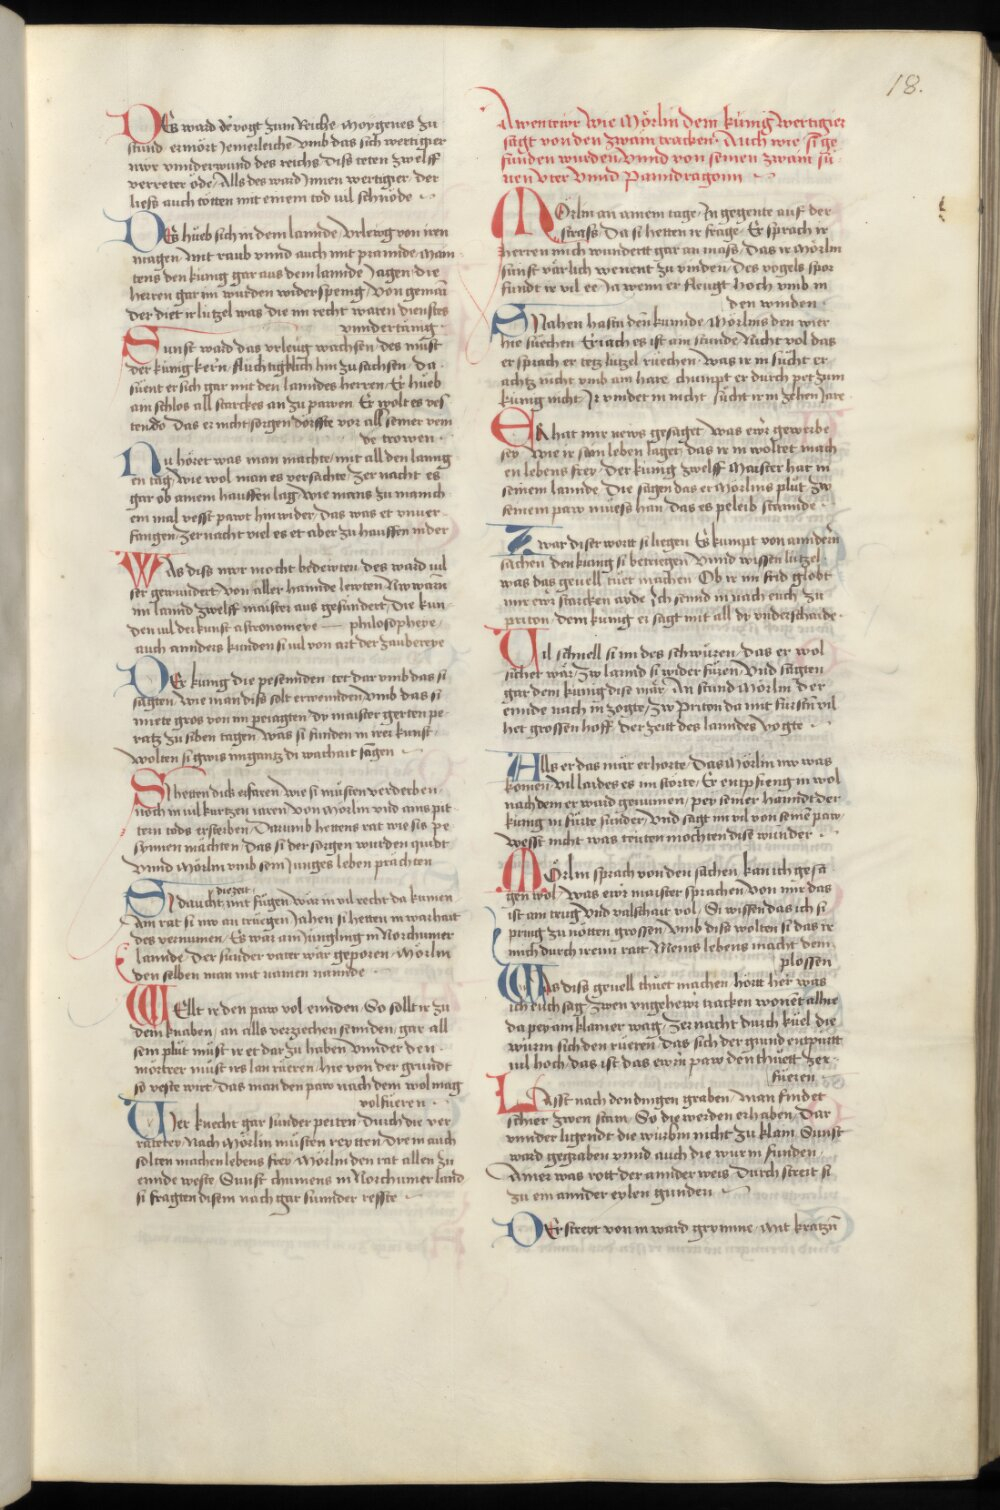 18.
Des ward de vogt zum Reiche Moygenes zu
stund ermört Jemerleiche vmb das sich wertigier
nwr vnnderwund des reichs diss teten zwelff
verreter öde / Alls des ward Jnnen wertigier der
liess auch tötten mit einem tod vil schnöde
Des hueb sich in dem lannde / vrlewg von iren
magen / mit raub vnnd auch mit prannde / Main
tens den kunig gar aus dem lannde Jagen / die
herren gar im wurden widerspenig / Von gemain
der diet ir lützel was die im recht waren dienstes
vnndertanig
Sunst ward das vrleug wachsen / des must
der kunig kern / fluchtigklich hin zu sachsen / Da
suent er sich gar mit den lanndes herren / Er hueb
am schlos all starckes an zu pawen / Er wolt es ves
ten do / Das er nicht sorgen dörffte vor all seiner vein
de trowen
Nu höret was man machte / mit all den lanng
en tag / wie wol man es versachte / zer nacht es
gar ob ainem hauffen lag / wie mans zu manich
em mal vesst pawt hinwider / Das was et vnuer
fangen / zer nacht viel es et aber zu hauffen nider
Was diss nwr mocht bedewten / des ward vil
ser gewundert / Von aller hannde lewten / Nw warn
im lannd zwelff maister aus gesundert / Die kun
den vil der kunst astronomeye — philosopheye /
auch annders kunden si vil von art der zaubereye
Der kunig die pesennden / tet dar vmb das si
sagten / wie man diss solt erwennden / vmb das si
miete gros von im peiagten / Dy maister gerten pe
ratz zu siben tagen / was si funden in irer kunst /
wolten si gwis im gantz di warhait sagen
Si hetten dick erfaren / wie si müsten verderben
noch in vil kurtzen iaren / von Mörlin vnd ains pit
tern tods ersterben / Darumb hettens rat wie sis pe
synnen machten / Das si der sorgen wurden quidt
vnnd Mörlin vmb sein Junges leben prächten
die zeit
Si daucht mit fügen / wär in vil recht da kumen
Am rat si nw an truegen / Jahen si hetten in warhait
des vernumen / Es wär am Jungling in Norchumer
lannde / Der sunder vater war geporen / Mörlin
den selben man mit namen nannde
Wellt ir den paw vol ennden / So sollt ir zu
dem knaben / an alls verziechen sennden / gar all
sein plut müst ir et dar zu haben / Vnnder den
mortrer müst irs lan rüeren / hie von der grundt
so veste wirt / Das man den paw nach dem wol mag
volfüeren
Vier knecht gar sunder peiten / Durch die ver
räteter / Nach Mörlin müsten reytten / Drein auch
solten machen lebens frey / Mörlin den rat allen zu
ennde weste / Sunst chumens in Norchumer lannd
si fragten disem nach gar sunnder reste
Awentewr wie Mörlin dem kunig wertigier
sagt von den zwain tracken / Auch wie si ge
funden wurden / Vnnd von seinen zwain sü
nen vter vnnd panndragonn
Mörlin an ainem tage / In gegente auf der
strass / Da si hetten ir frage / Er sprach ir
herren mich wundertt gar an mass / Das ir Mörlin
sunst värlich wenent zu vinden / Des vogels spor
fundt ir vil ee / Ja wenn er fleugt hoch vmb in
den winden
Si iahen hastu den kunnde / Mörlins den wier
hie suechen / Er iach es ist am stunde / Nicht vol das
er sprach er tetz lützel ruechen / was ir in sucht er
achtz nicht vmb am hare / chumpt er durch pet zum
kunig nicht / Ir vindet in nicht / sücht ir in zehen Jare
Er hat mir news gesaget / was ewr gewerbe
sey / wie ir stan leben laget / das ir in woltet mach
en lebens frey / Der kunig zwelff Maister hat in
seinem lannde / Die sagen das er Mörlins plut zw
seinem paw muess han / Das es peleib stannde
Zwar diser wort si liegen / Es kumpt von anndern
sachen / den kunig si betriegen / Vnnd wissen lützel
was das geuell tuet machen / Ob ir im frid globt
mit ewr starcken ayde / Ich sennd in nach euch zu
priton / dem kunig er sagt mit all dy vnderschaide
Vil schnell si im des schwüren / das er wol
sicher wär / Zw lannd si wider füren / Vnd sagten
gar dem kunig dise mär / An stund Mörlin der
ennde nach in zogte / Zw Priton da mit fursten vil
het grossen hoff / Der zeitt des lanndes vogte
Alls er das mär erhorte / Das Mörlin nw was
komen / Vil laides es im störte / Er entpfieng in wol
nach dem er ward genumen / per seiner hanndt der
kunig in fürte sunder / Vnd sagt im vil von seinem paw
wesst nicht was teuten möchten dise wunder
Mörlin sprach von den sachen / kan ich gesa
gen wol / Was ewr maister sprachen / von mir das
ist am trug vnd valschait vol / Si wissen das ich si
pring zu nötten grossen / vmb diss wolten si das ir
mich durch irenn ratt / Meins lebens macht dem
plossen
Was diss geuell thuet machen / hört her was
ich euch sag / zwen vngehewr tracken / wonet allhie
da pey am klamer wag / Zer nacht durch küel die
würm sich den rüeren / Das sich der grund entpürtt
vil hoch / das ist das ewrn paw den thuett zer
füeren
Lasst nach den dingen graben / Man findet
schier zwen stain / So dy werden erhaben / Dar
vnnder ligendt die würbm nicht zu klain / Sunst
ward gegraben vnnd auch die wurm funden
Ainer was rott der annder weis / Durch streit si
zu ein annder eylen gunden
Der streyt von in ward grymme / Mit kratzen